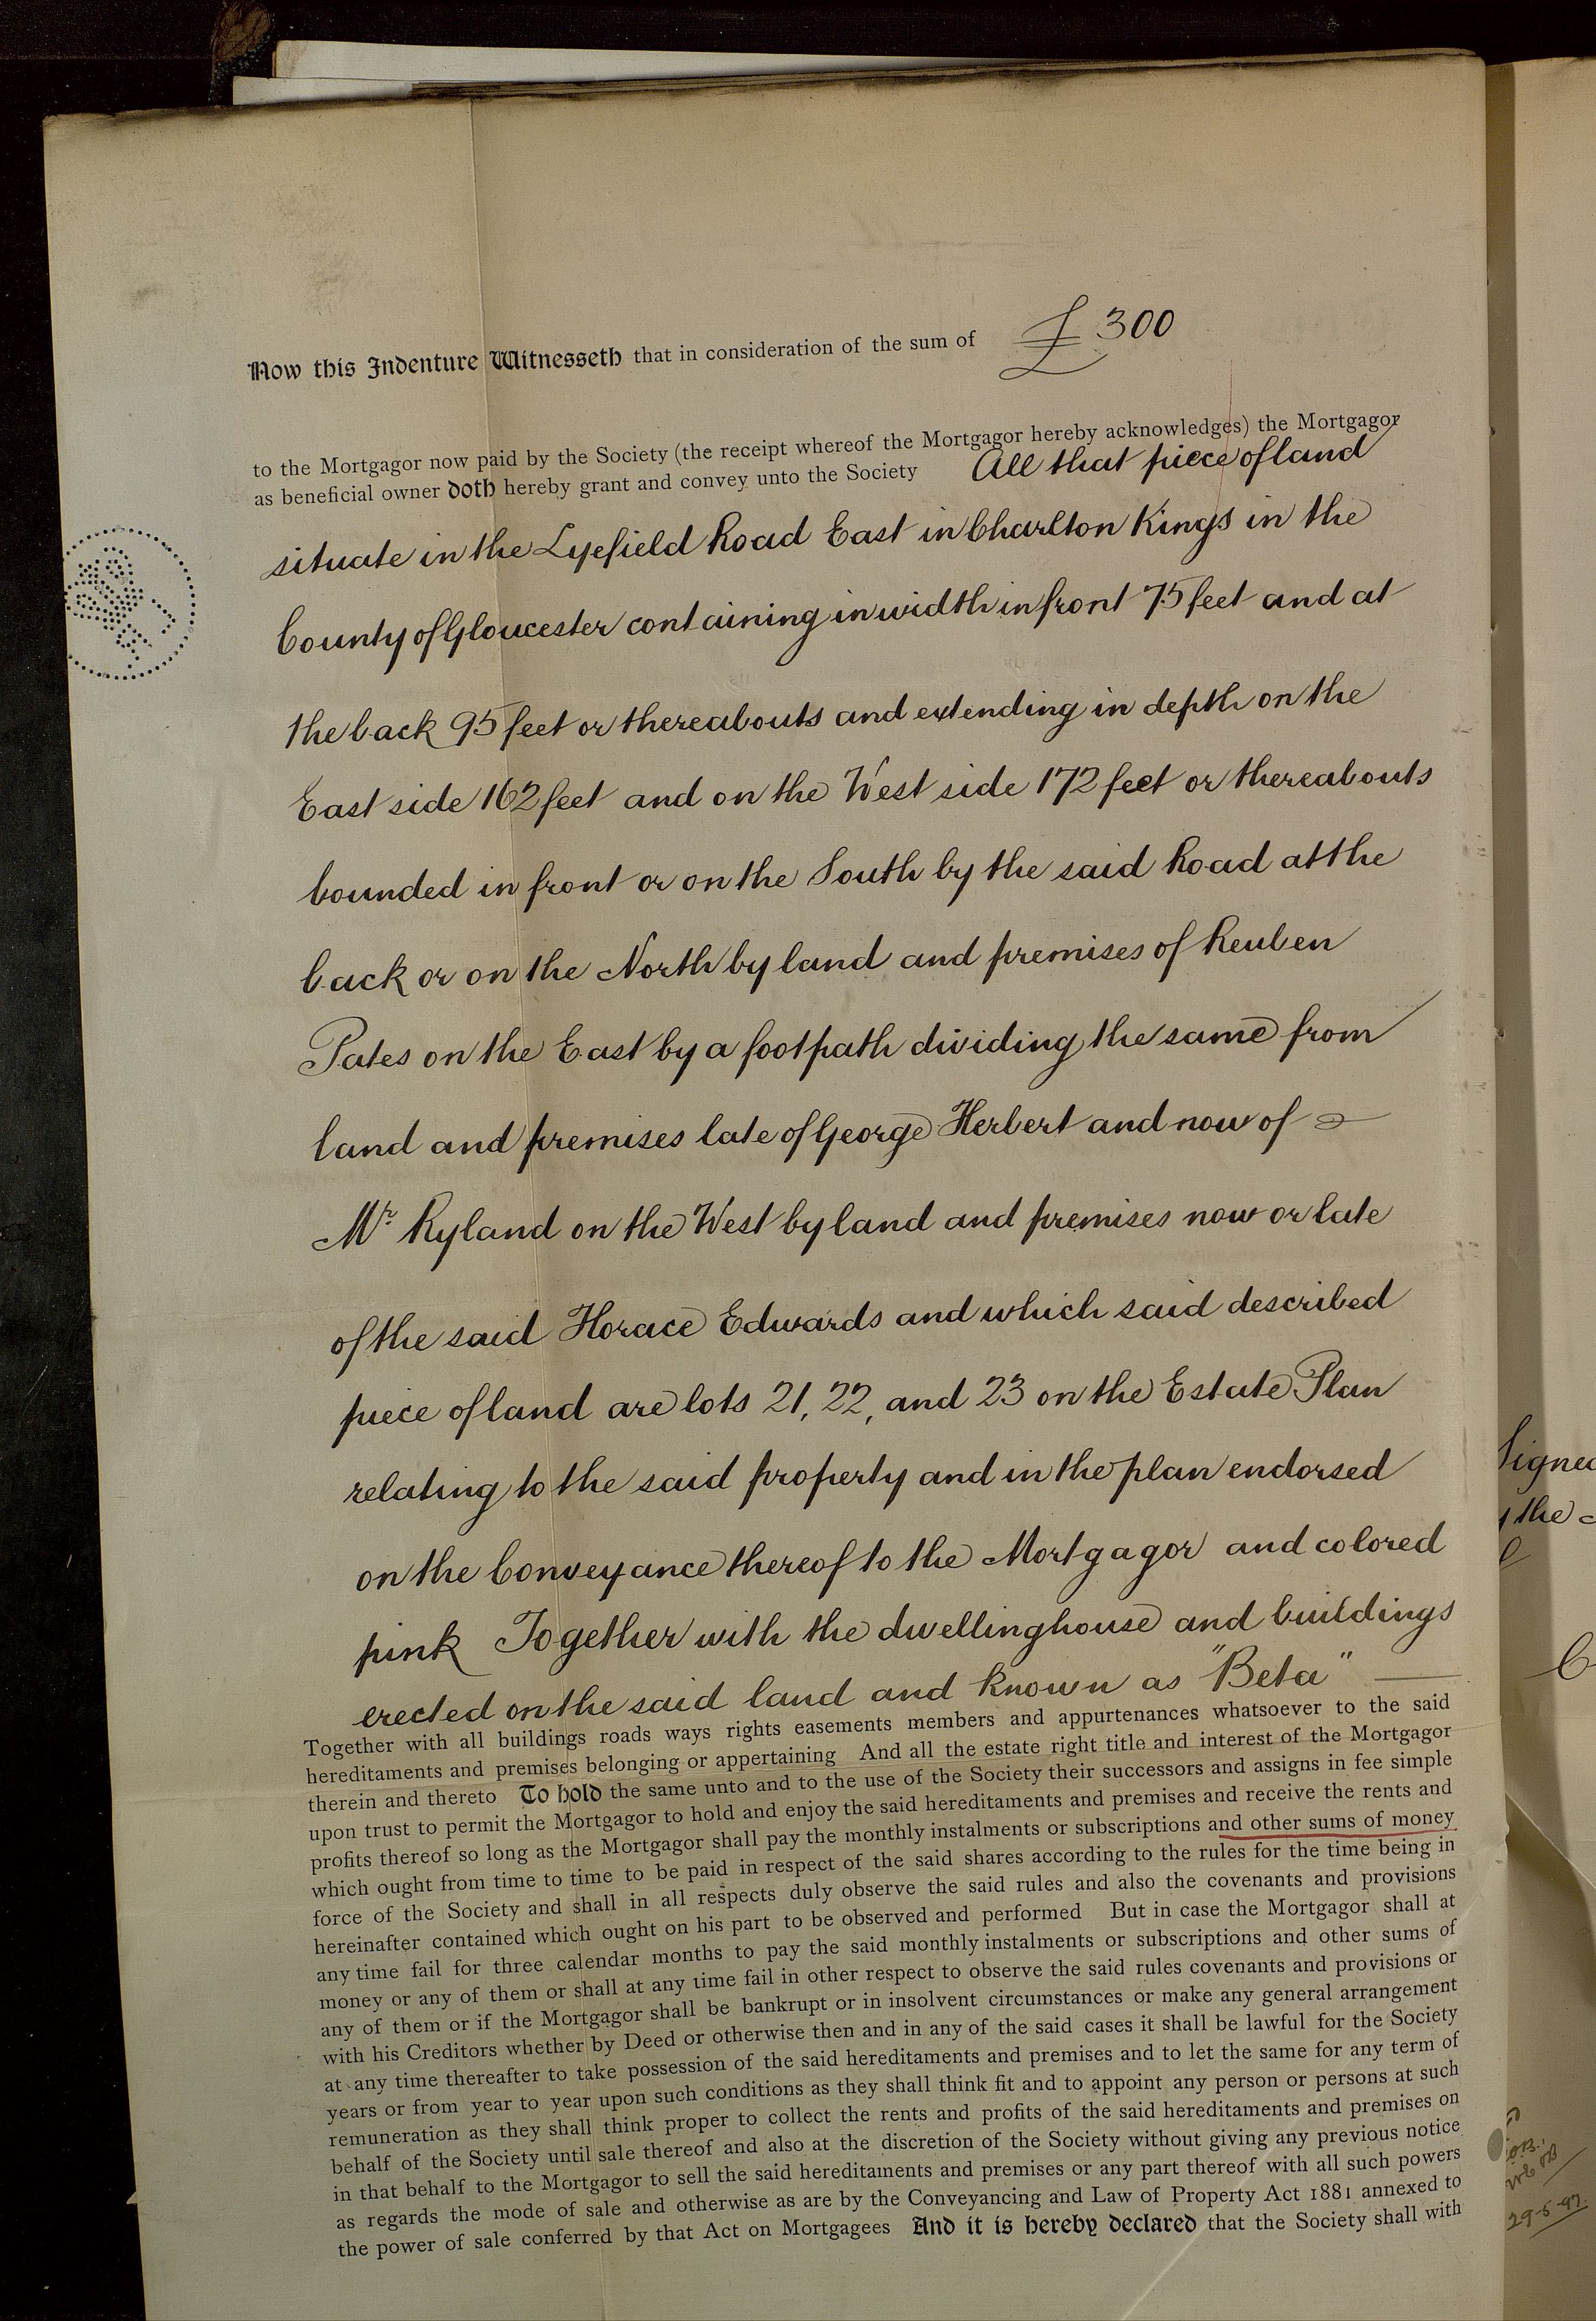 Now this Indenture Witnesseth that in consideration of the sum of £300
to the Mortgagor now paid by the Society (the receipt whereof the Mortgagor hereby acknowledges) the Mortgagor
as beneficial owner doth hereby grant and convey unto the Society All that piece of land
situate in the Lyefield Road East in Charlton Kings in the
County of Gloucester containing in width in front 75 feet and at
the back 95 feet or thereabouts and extending in depth on the
East side 162 feet and on the West side 172 feet or thereabouts
bounded in front or on the South by the said Road at the
back or on the North by land and premises of Reuben
Pates on the East by a footpath dividing the same from
land and premises late of George Herbert and now of
Mr. Ryland on the West by land and premises now or late
of the said Horace Edwards and which said described
piece of land are lots 21, 22, and 23 on the Estate Plan
relating to the said property and in the plan endorsed
on the Conveyance thereof to the Mortgagor and colored
pink Together with the dwellinghouse and buildings
erected on the said land and known as "Beta"
Together with all buildings roads ways rights easements members and appurtenances whatsoever to the said
hereditaments and premises belonging or appertaining And all the estate right title and interest of the Mortgagor
therein and thereto To hold the same unto and to the use of the Society their successors and assigns in fee simple
upon trust to permit the Mortgagor to hold and enjoy the said hereditaments and premises and receive the rents and
profits thereof so long as the Mortgagor shall pay the monthly instalments or subscriptions and other sums of money
which ought from time to time to be paid in respect of the said shares according to the rules for the time being in
force of the Society and shall in all respects duly observe the said rules and also the covenants and provisions
hereinafter contained which ought on his part to be observed and performed But in case the Mortgagor shall at
any time fail for three calendar months to pay the said monthly instalments or subscriptions and other sums of
money or any of them or shall at any time fail in other respect to observe the said rules covenants and provisions or
any of them or if the Mortgagor shall be bankrupt or in insolvent circumstances or make any general arrangement
with his Creditors whether by Deed or otherwise then and in any of the said cases it shall be lawful for the Society
at any time thereafter to take possession of the said hereditaments and premises and to let the same for any term of
years or from year to year upon such conditions as they shall think fit and to appoint any person or persons at such
remuneration as they shall think proper to collect the rents and profits of the said hereditaments and premises on
behalf of the Society until sale thereof and also at the discretion of the Society without giving any previous notice
in that behalf to the Mortgagor to sell the said hereditaments and premises or any part thereof with all such powers
as regards the mode of sale and otherwise as are by the Conveyancing and Law of Property Act 1881 annexed to
the power of sale conferred by that Act on Mortgagees And it is hereby declared that the Society shall with
Signed
the
29-5-97.